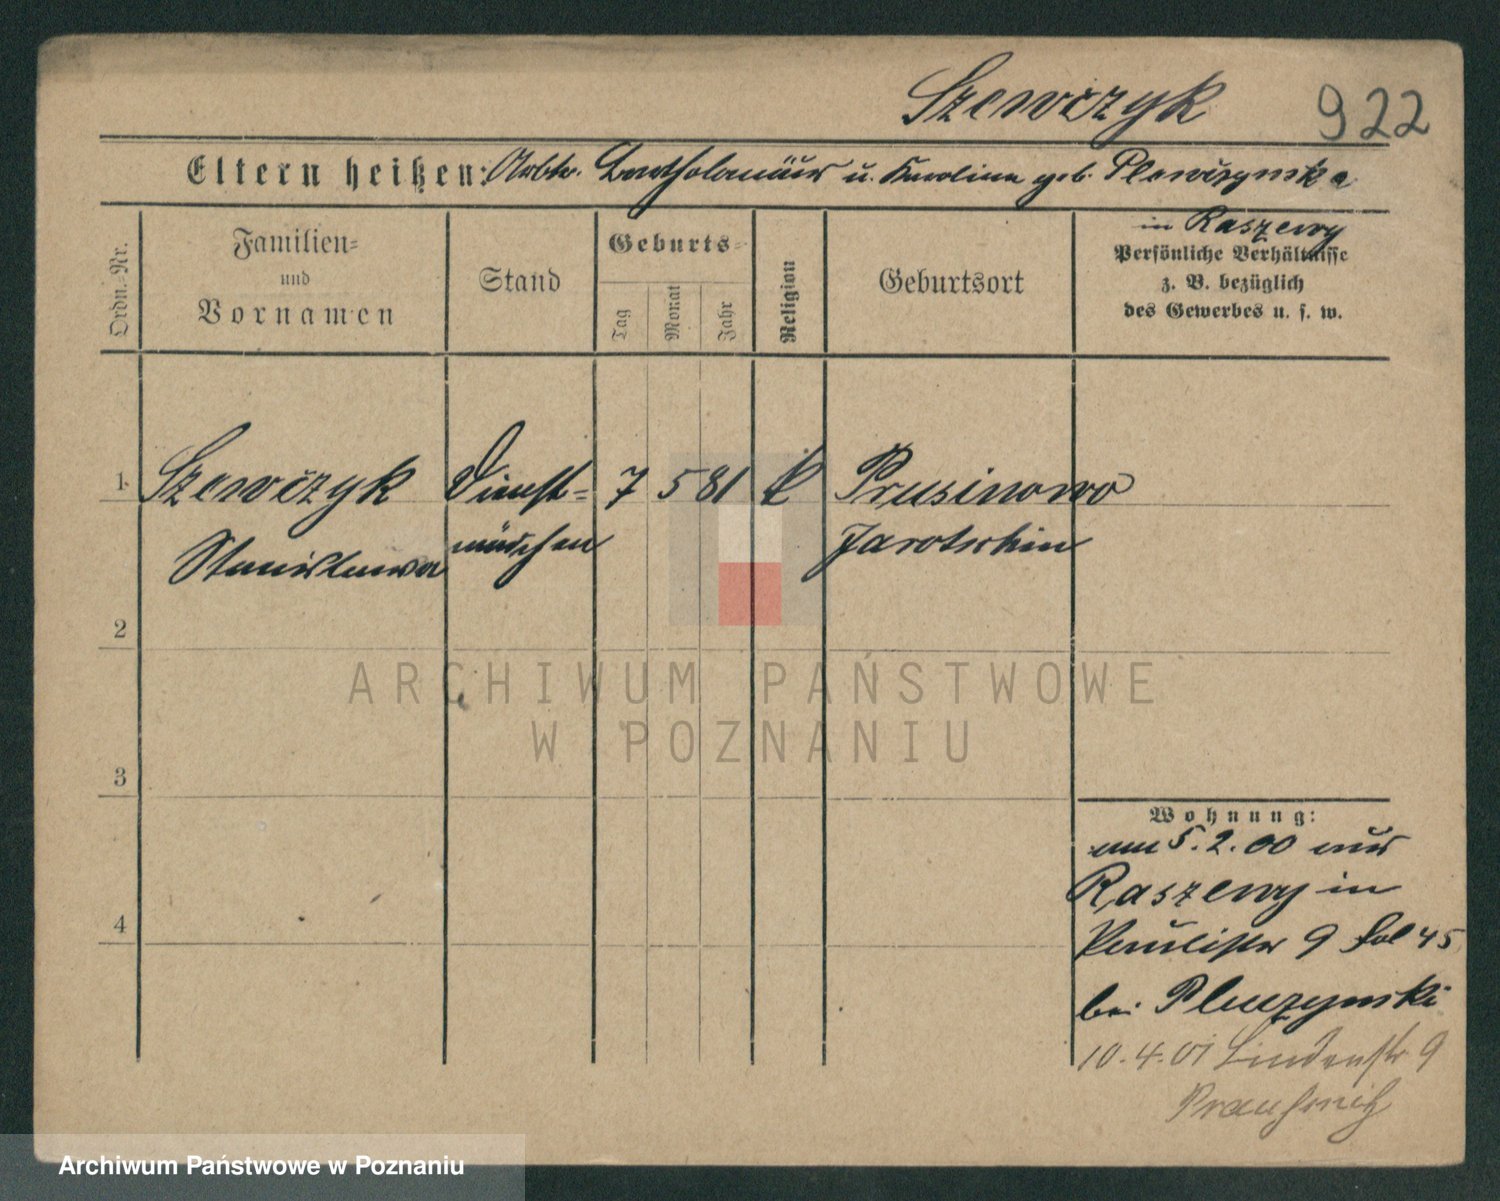 Szewczyk 922
Eltern heißen: Arbtr. Bartholomäus u. Karolina geb. Plewczynska
in Raszewy
Ordn.-Nr.
Familien-
und
Vornamen
Stand
Geburts-
Tag
Monat
Jahr
Religion
Geburtsort
Persönliche Verhältnisse
z. B. bezüglich
des Gewerbes u. s. w.
1 Szewczyk Dienst- 7 5 81 k Prusinowo
Stanislawa mädchen Jarotschin
2
ARCHIWUM PAŃSTWOWE
W POZNANIU
3
Wohnung:
am 5.2.00 aus
Raszewy in
4
Paulistr 9 Fol 45
bei Pluczynski
10.4.01 Lindenstr 9
Archiwum Państwowe w Poznaniu